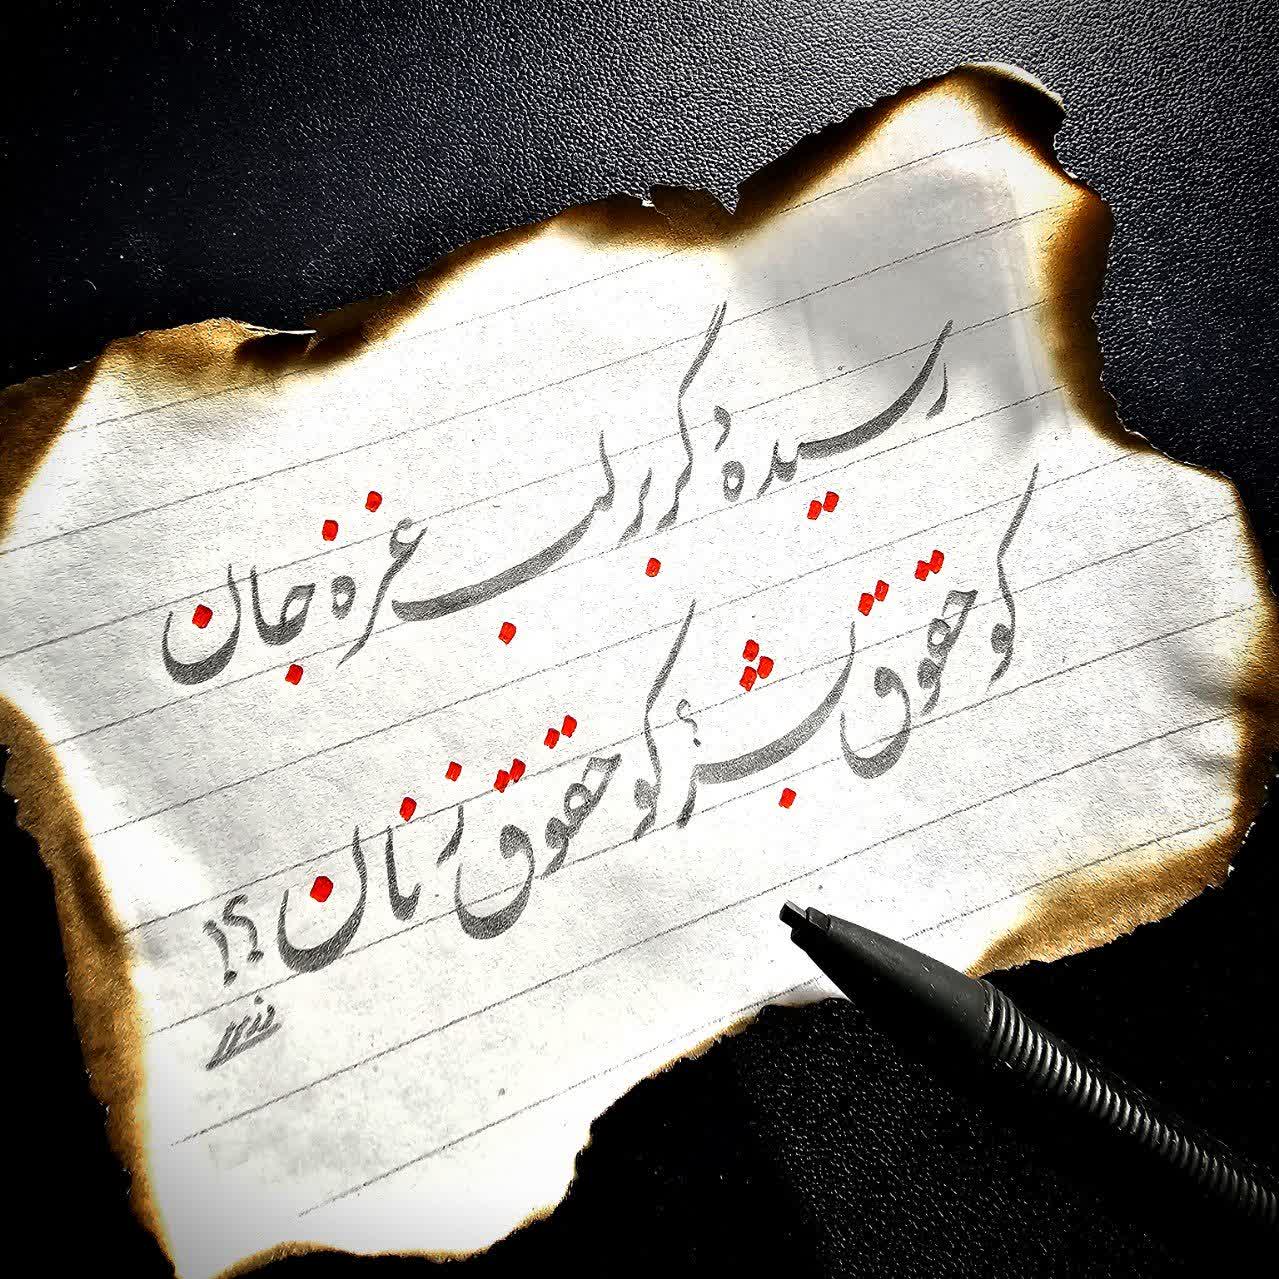 رسیده گر بر لب غزه جان
کو حقوق بشرِ کو حقوق زنان
؟!